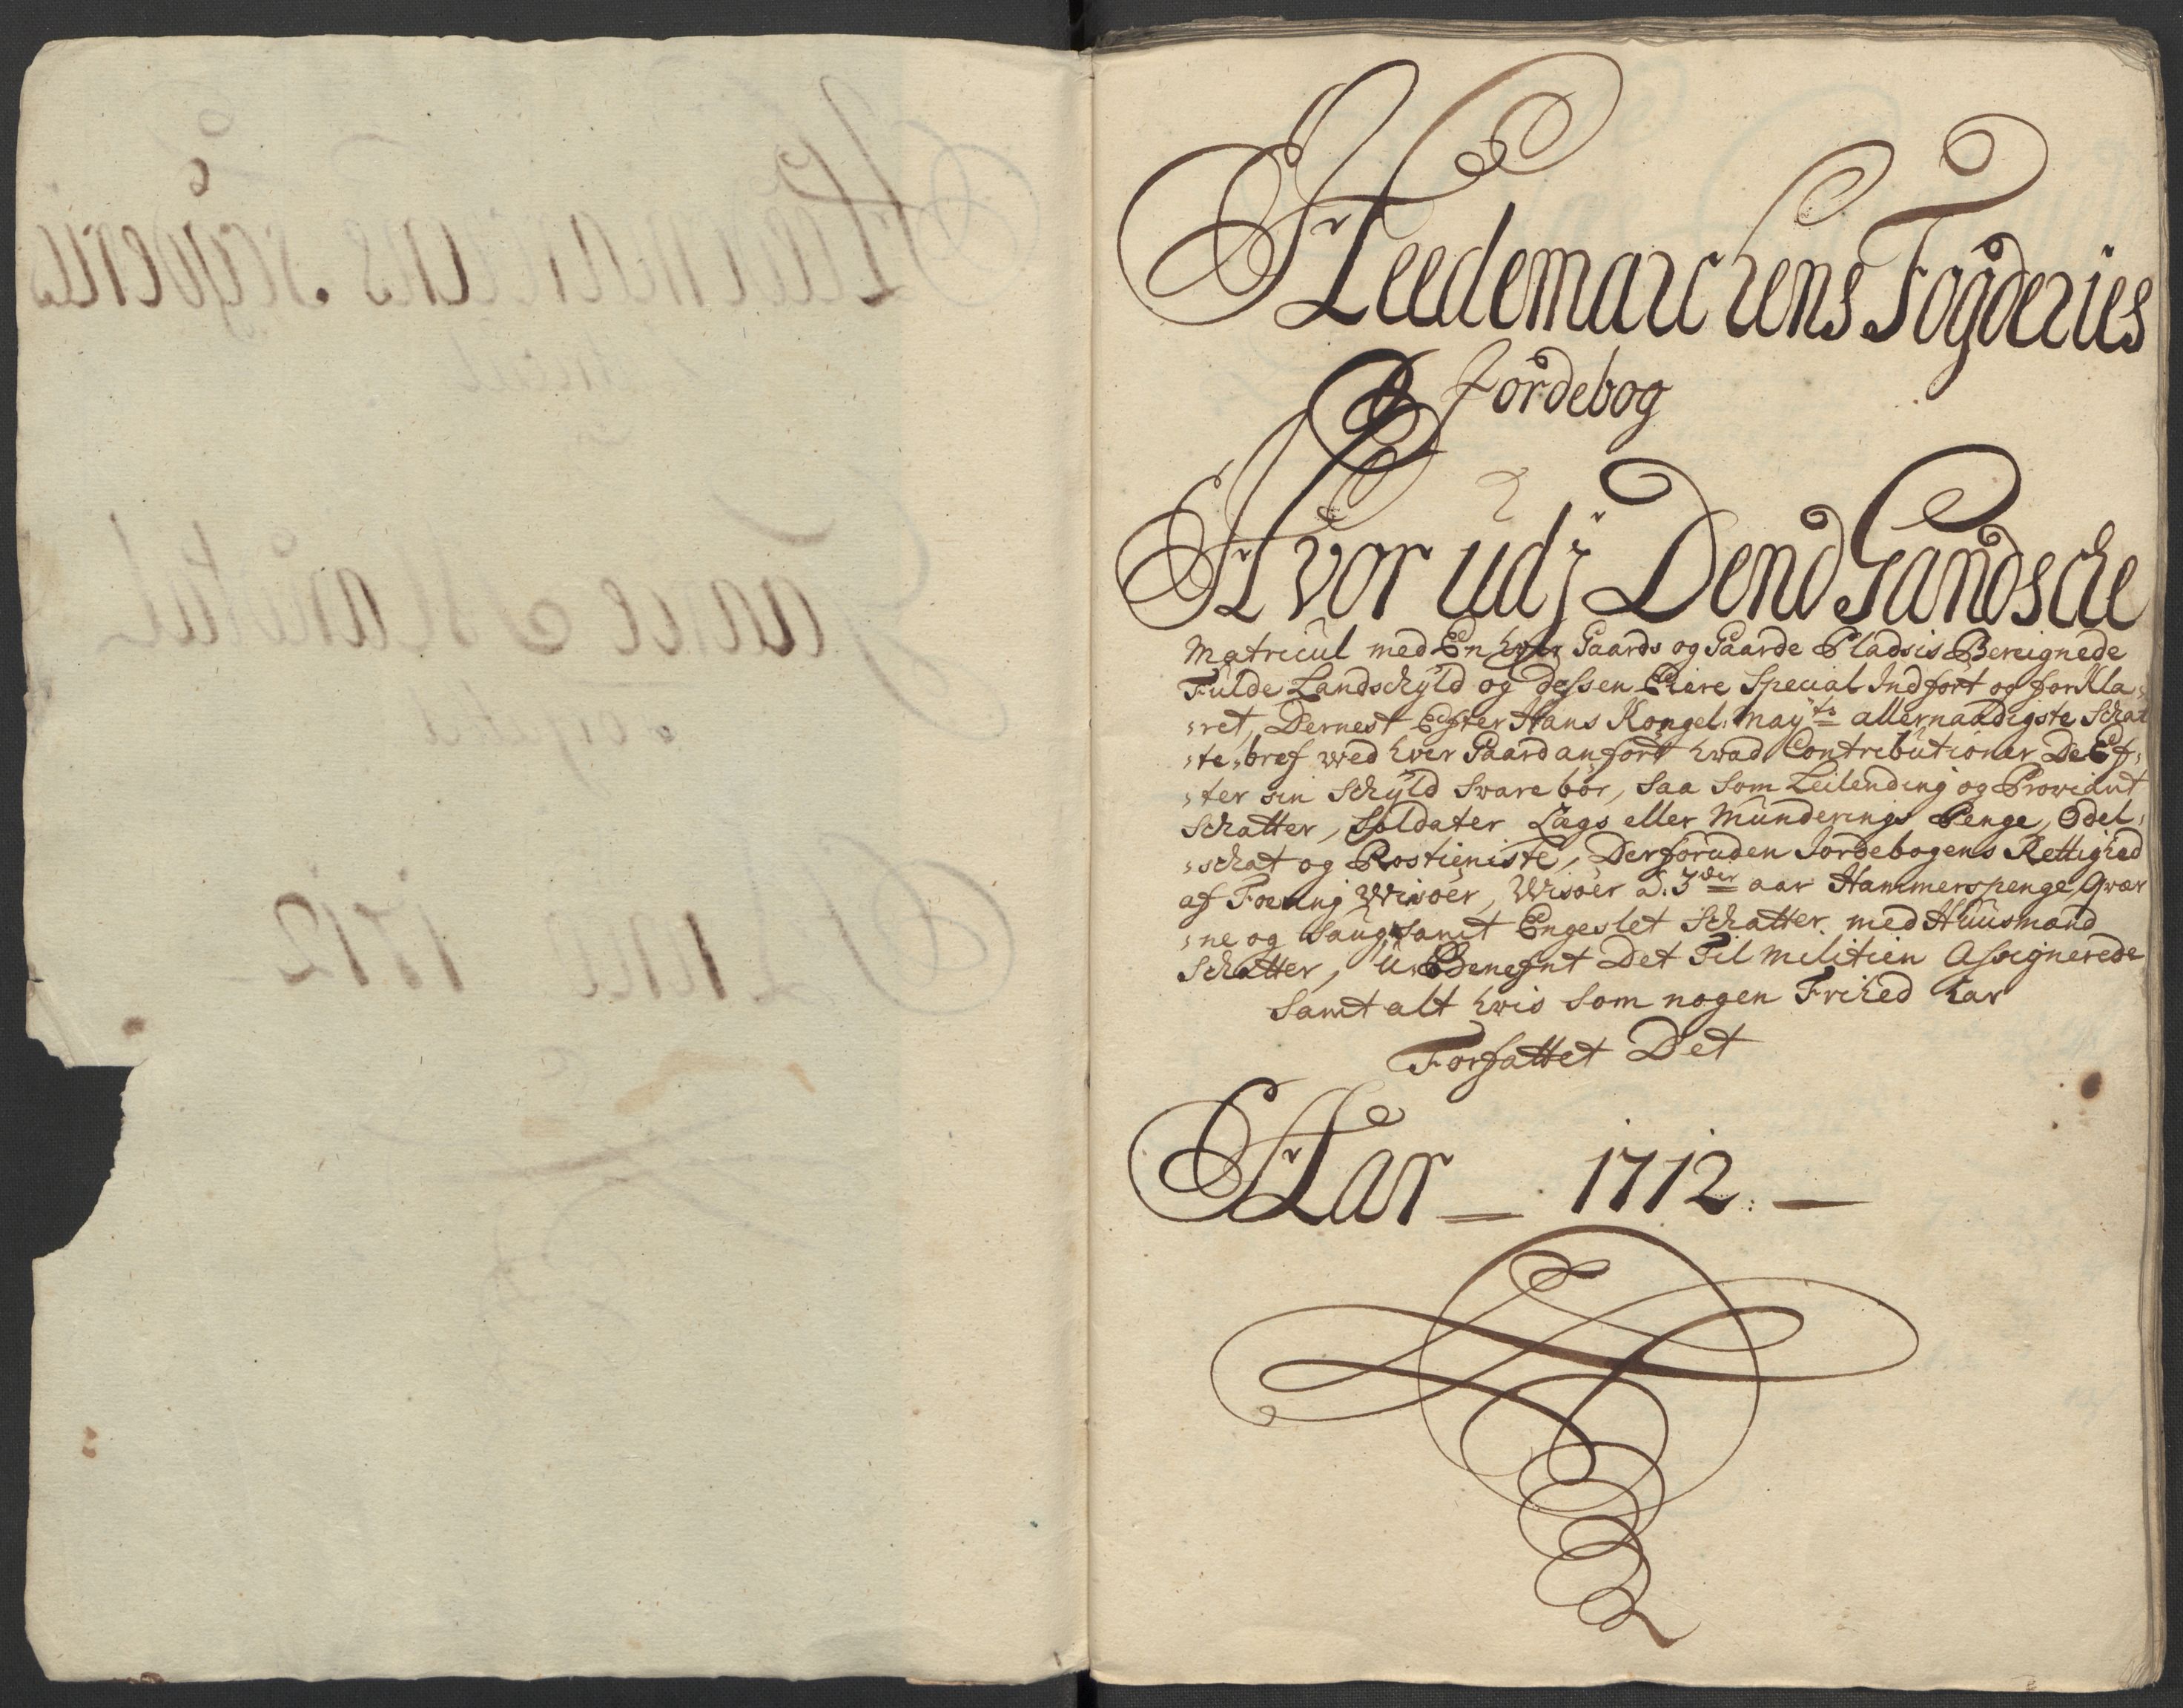 Heedemarchens Fogderies
Jordebog
Hvor udj Dend Gandsche
Matricul med En hver Gaards og Gaarde Pladsis Bereignede
Fulde Landschyld og dessen Eiere Special Indfort og forkla,,
,,ret, Dernest Efter Hans Kongel: May:ts allernaadigste Schat
,,te,,bref wed hver Gaard anfört hwad Contributioner De Ef,,
,,ter sin Schyld Sware bör, saa som Leilending og Proviant
Schatter, Soldater Lægs eller Munderings Penge, Odel,,
,,schat og Rostieniste, Derforuden Jordebogens Rettighed
af Foering Wisöer, Wisöer a. 3der aar Hammerspenge, Qvær
,,ne og Saug samt Engeslet Schatter. med Huusmand
Schatter, U,,Benefnt Det Til militien Assignerede
Samt alt hvis som nogen Frihed har
Forfattet Det
Aar 1712.